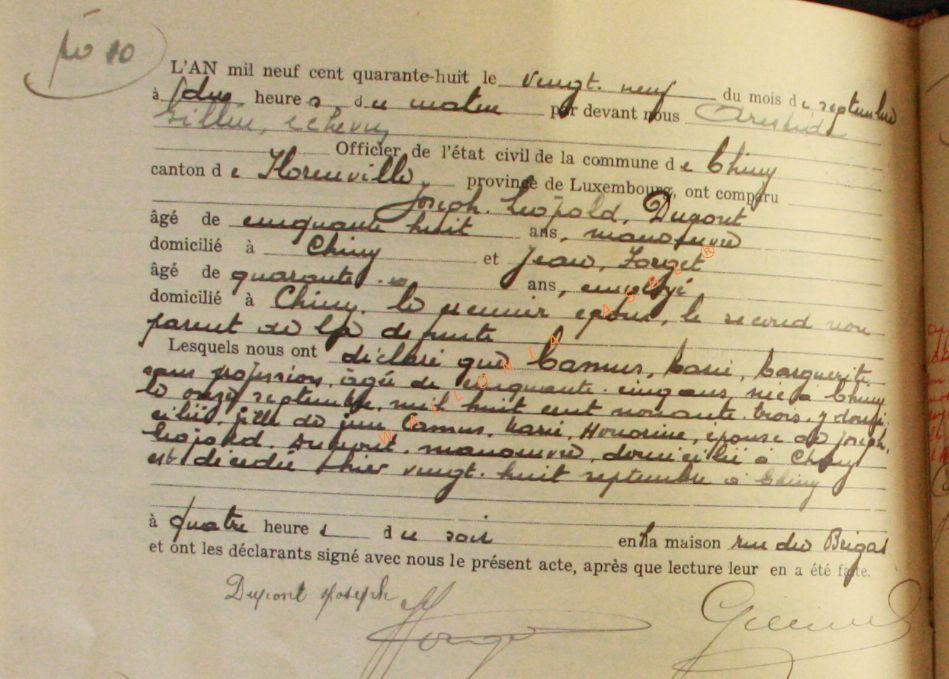 No 10
L'AN mil neuf cent quarante-huit le vingt-neuf du mois de septembre
à dix heures du matin par devant nous Aristide
Gillin, échevin
Officier de l'état civil de la commune de Chiny
canton de Florenville, province de Luxembourg, ont comparu
Joseph, Léopold, Dupont
âgé de cinquante huit ans, manoeuvre
domicilié à Chiny et Jean, Forget
âgé de quarante ans, employé
domicilié à Chiny, le premier époux, le second non
parent de la défunte
Lesquels nous ont déclaré que Camus, Marie, Marguerite
sans profession, âgée de cinquante-cinq ans, née à Chiny
le onze septembre mil huit cent nonante-trois, y domi
ciliée, fille de feu Camus, Marie, Honorine, épouse de Joseph,
Léopold, Dupont, manoeuvre, domicilié à Chiny
est décédée hier vingt-huit septembre à Chiny
à quatre heures du soir en la maison rue du
et ont les déclarants signé avec nous le présent acte, après que lecture leur en a été faite.
Dupont Joseph
Forget
WALLONIA ASBL ®